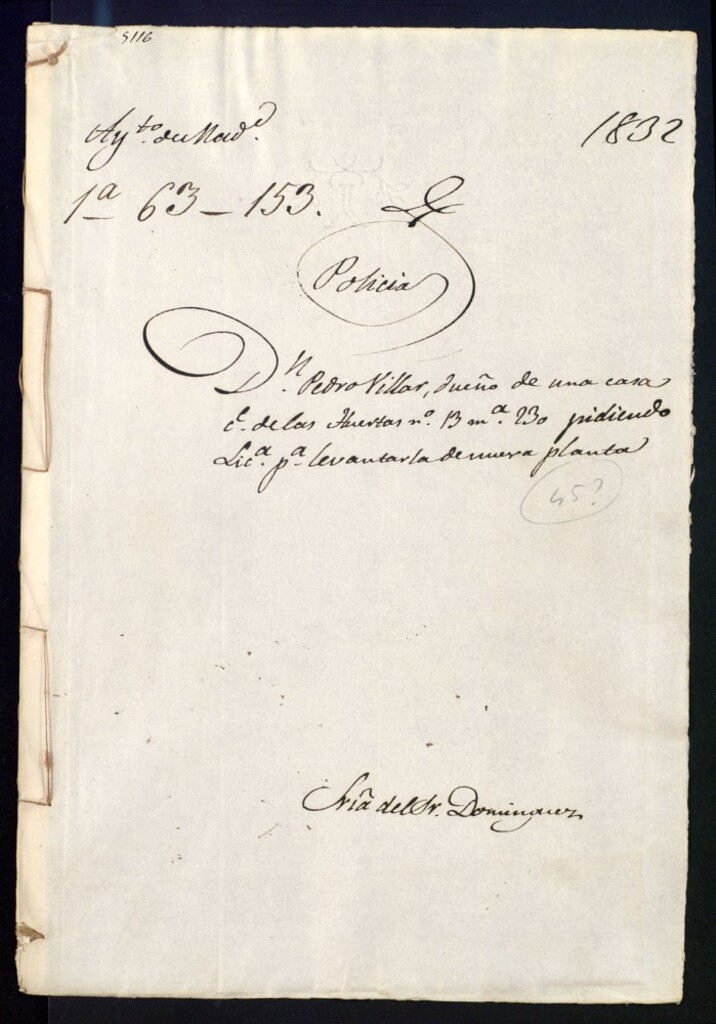 5116
Ayto. de Madd.
1832
1a 63-153.
Policia
Dn. Pedro Villar, dueño de una casa
c. de las Huertas no. 13 ma. 230 pidiendo
Lica. pa. levantarla de nueva planta
45?
Sria del Sr. Dominguez